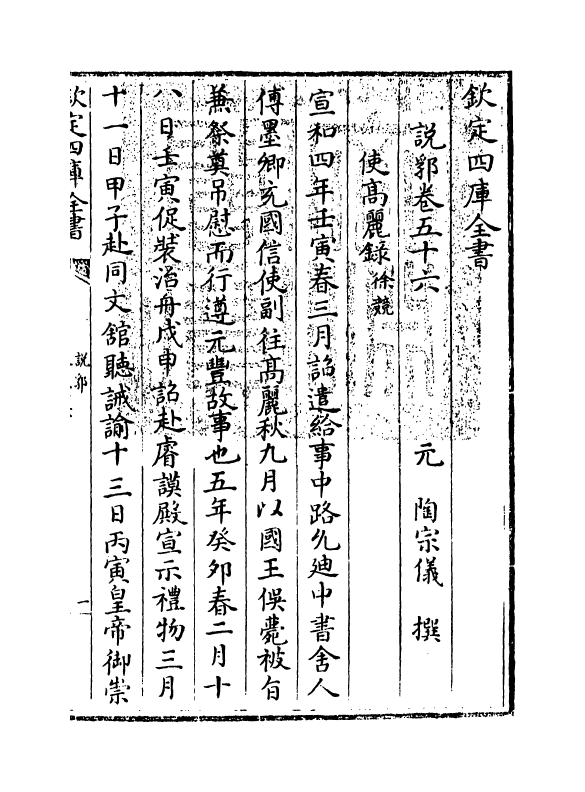 欽定四庫全書
說郛卷五十六 元 陶宗儀 撰
使髙麗錄 徐兢
宣和四年壬寅春三月詔遣給事中路允廸中書舍人
傅墨卿充國信使副往髙麗秋九月以國王俁薨被㫖
兼祭奠吊慰而行遵元豐故事也五年癸卯春二月十
八日壬寅促裝治舟戊申詔赴睿謨殿宣示禮物三月
十一日甲子赴同文舘聽誡諭十三日丙寅皇帝御崇
欽定四庫全書
說郛
一